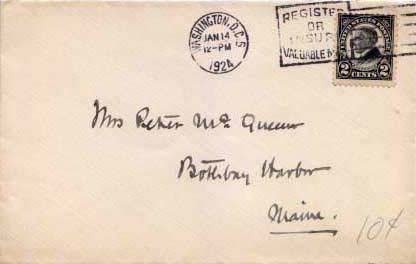 WASHINGTON, D.C. 6
JAN 14
12-PM
1924
REGISTER
OR
INSURE
VALUABLE
UNITED STATES POSTAGE
2 CENTS 2
Mrs Peter Mc Queen
Bothbay Harbor
Maine.
10¢